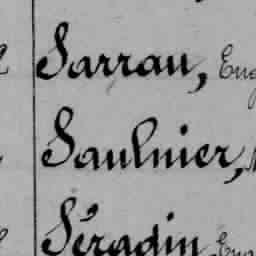 Sarrau, Eug
Saulnier,
Séradin, Eug